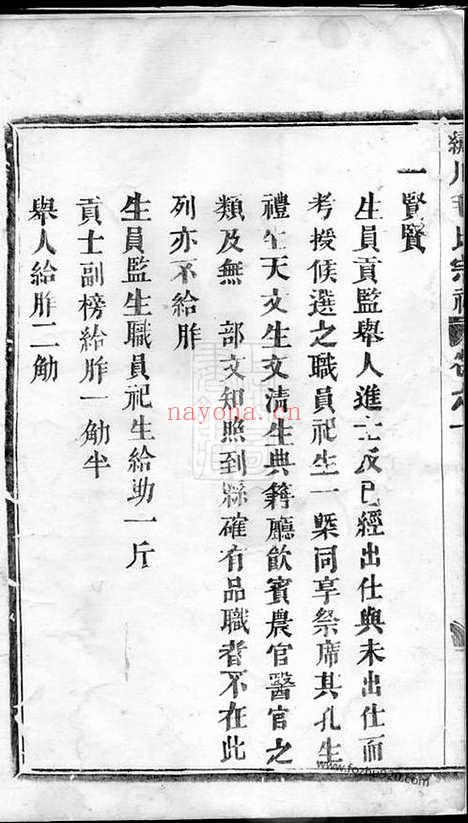 一賢賢
生員貢監舉人進士及已經出仕與未出仕而
考授候選之職員祀生一槩同享祭席其孔生
禮生天文生文清生典籍廳飲賓農官醫官之
類及無　部文知照到縣確有品職者不在此
列亦不給胙
生員監生職員祀生給助一斤
貢士副榜給胙一觔半
舉人給胙二觔
nayona.cn
www.fozhu920.com